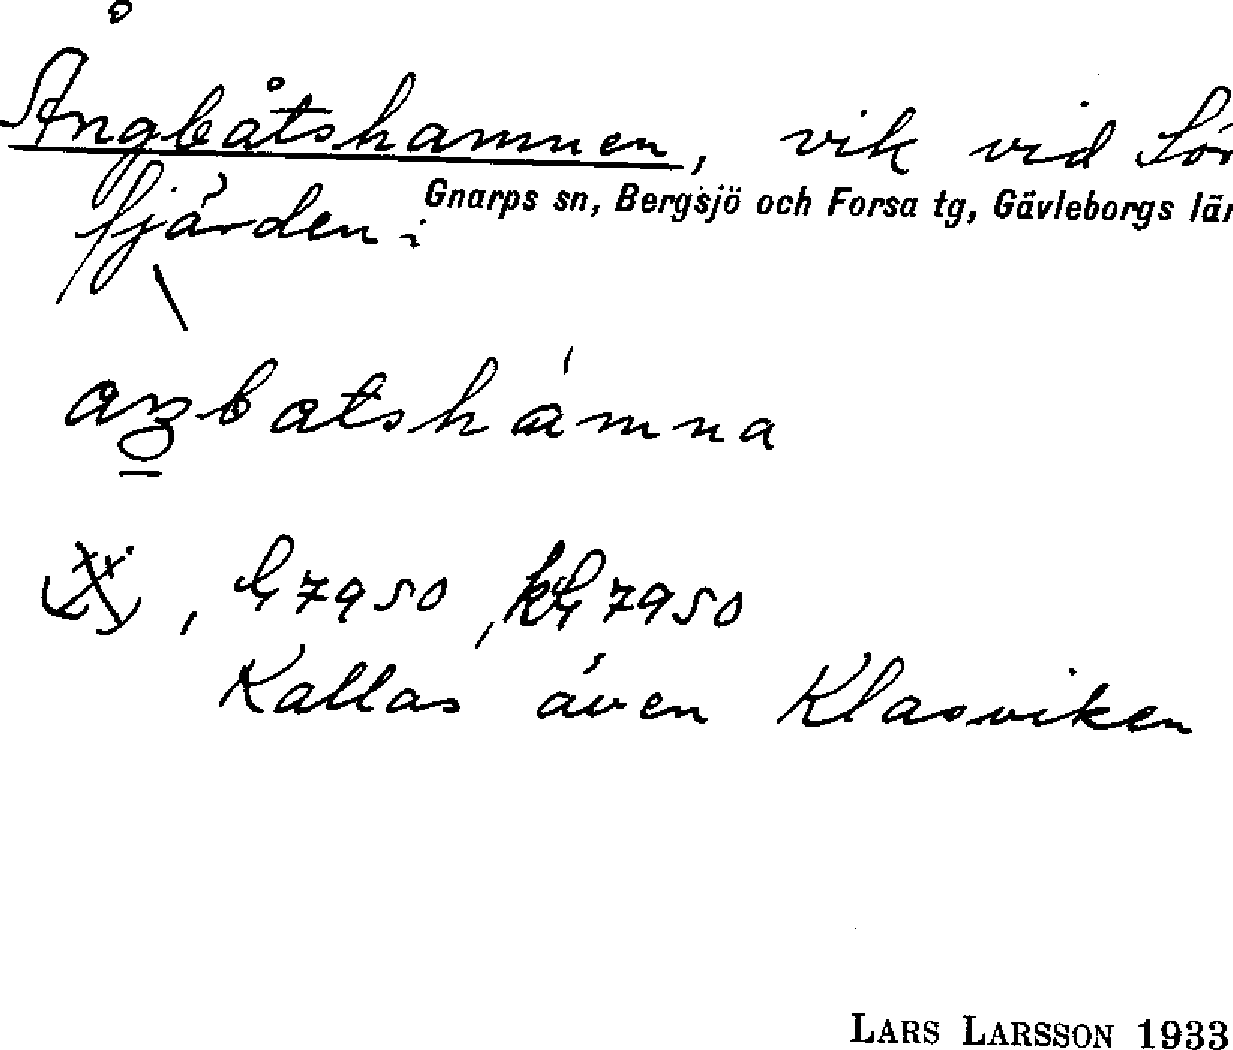 Ångbåtshamnen, vik vid Sör
fjärden i Gnarps sn, Bergsjö och Forsa tg, Gävleborgs län
aŋbatshámna
, G7950, kG7950
Kallas även Klasviken
LARS LARSSON 1933